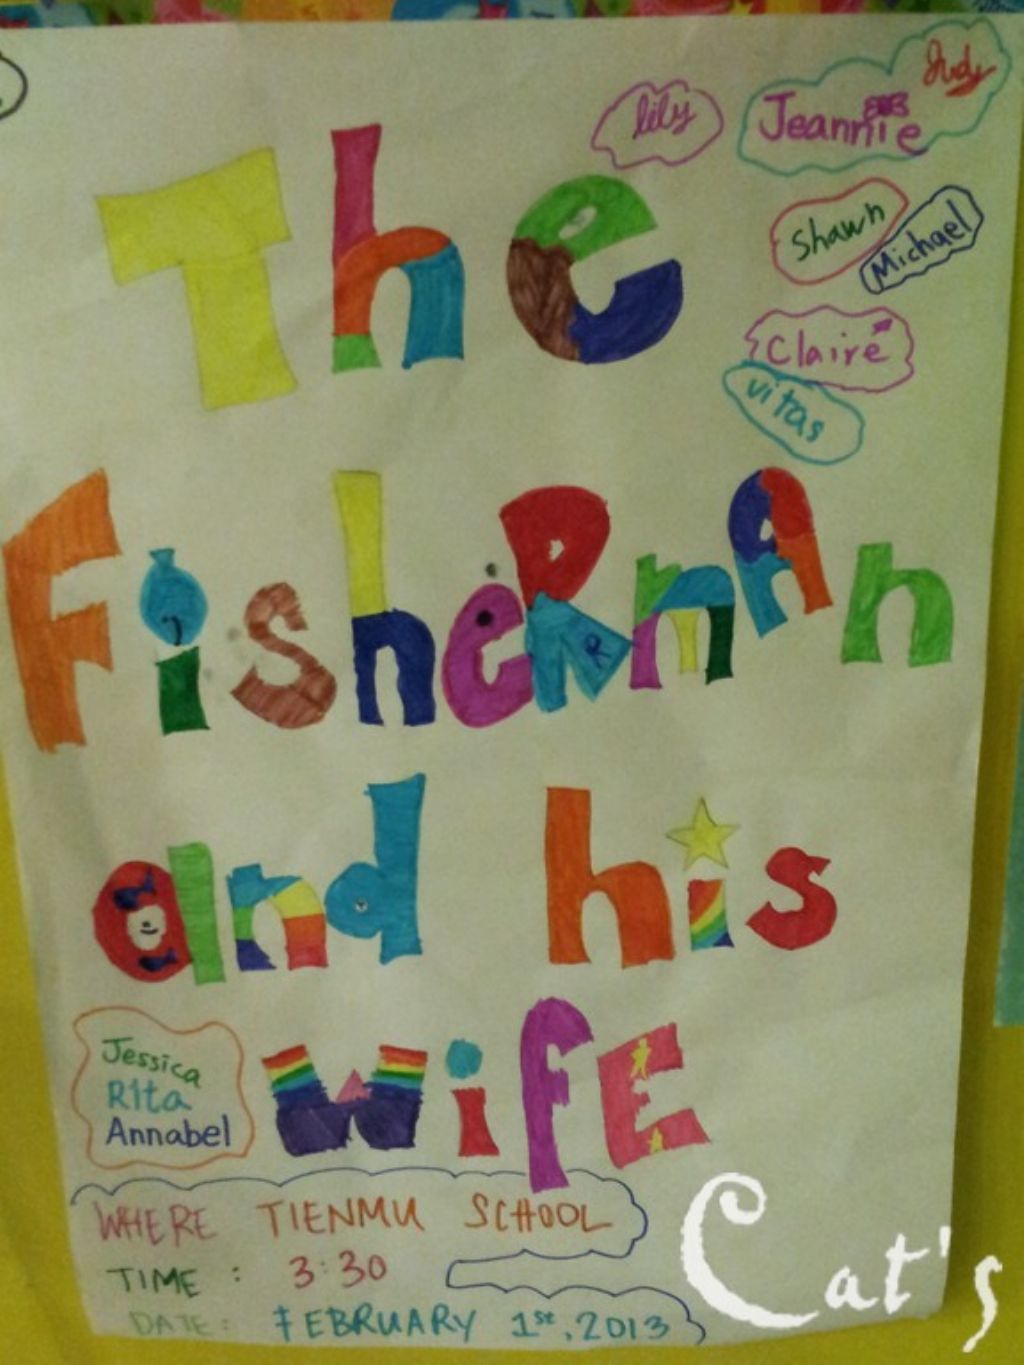 Judy
lily
Jeannie
Shawn
Michael
Claire
vitas
The
FisheRmAn
and his
wifE
Jessica
Rita
Annabel
WHERE TIENMU SCHOOL
TIME : 3:30
DATE: FEBRUARY 1st, 2013
Cat's